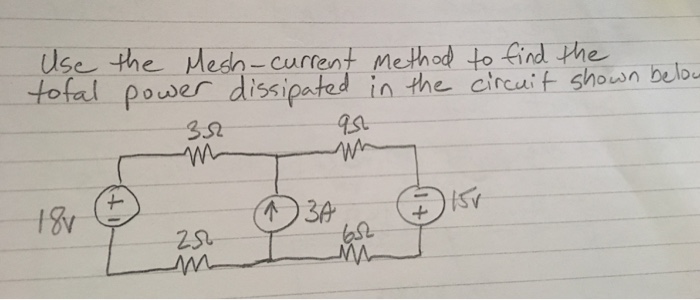 Use the Mesh-current Method to find the
total power dissipated in the circuit shown
3Ω 9Ω
+
-
18v
3A
-
+
15v
2Ω 6Ω